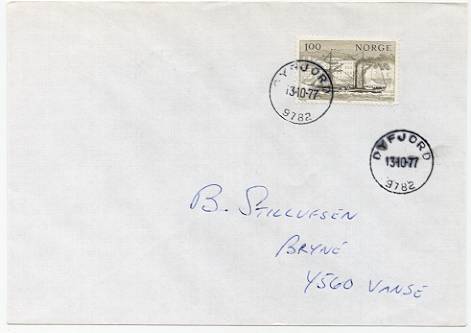 1.00 NORGE
DYFJORD
13-10-77
9782
DYFJORD
13-10-77
9782
B. STILLUFSEN
BRYNE
4560 VANSE